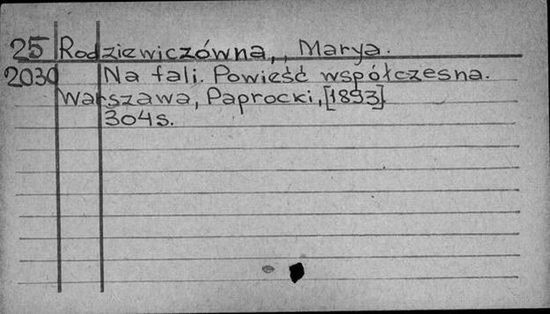 25 Rodziewiczówna,, Marya.
2030 Na fali. Powieść współczesna.
Warszawa, Paprocki, [1893]
304 s.